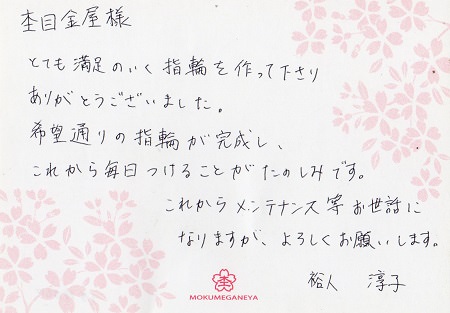 杢目金屋様
とても満足のいく指輪を作って下さり
ありがとうございました。
希望通りの指輪が完成し、
これから毎日つけることがたのしみです。
これからメンテナンス等お世話に
なりますが、よろしくお願いします。
裕人 淳子
杢
MOKUMEGANEYA